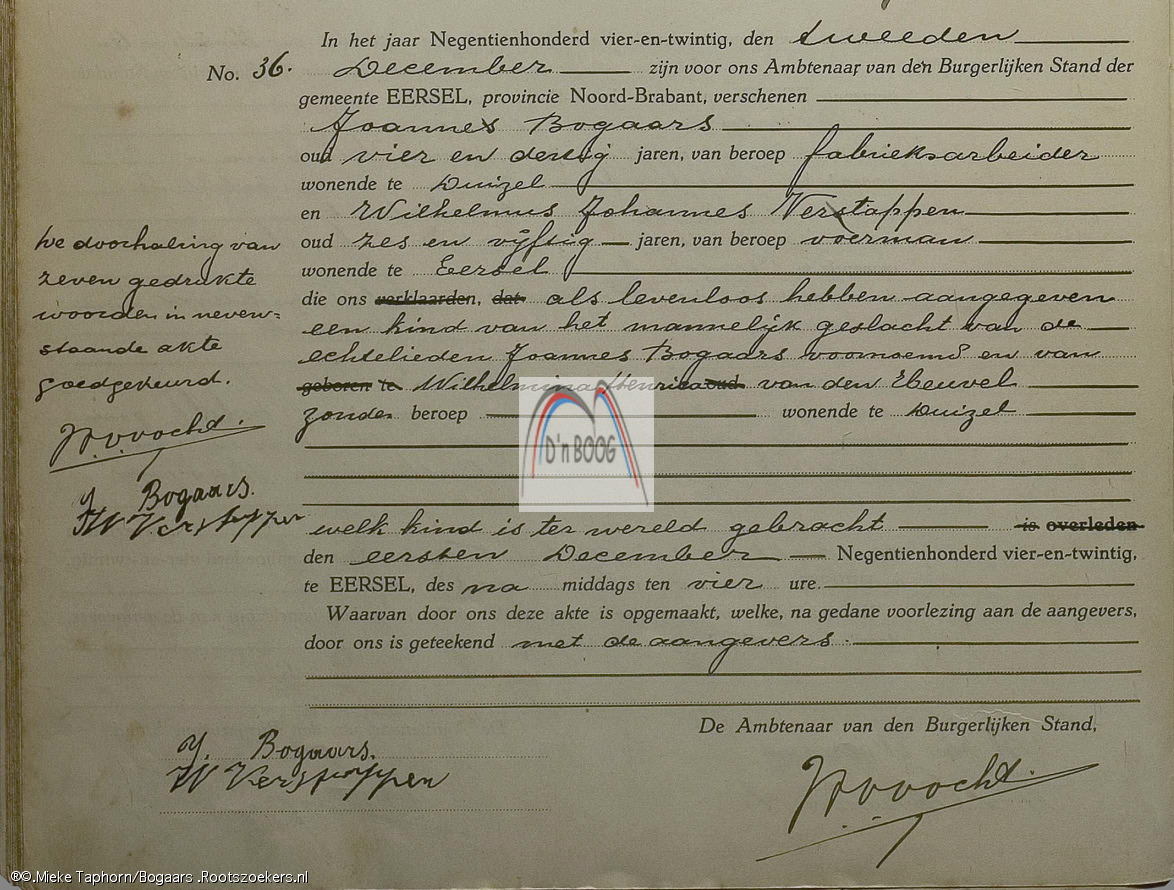 In het jaar Negentienhonderd vier-en-twintig, den tweeden
No. 36. December zijn voor ons Ambtenaar van den Burgerlijken Stand der
gemeente EERSEL, provincie Noord-Brabant, verschenen
Joannes Bogaars
oud vier en dertig jaren, van beroep fabrieksarbeider
wonende te Duizel
en Wilhelmus Johannes Verstappen
oud zes en vijftig jaren, van beroep voerman
wonende te Eersel
die ons verklaarden, dat als levenloos hebben aangegeven
een kind van het mannelijk geslacht van de
echtelieden Joannes Bogaars voornoemd en van
geboren te Wilhelmina Henrica oud van den Heuvel
zonder beroep wonende te Duizel
welk kind is ter wereld gebracht is overleden
den eersten December Negentienhonderd vier-en-twintig,
te EERSEL, des na middags ten vier ure.
Waarvan door ons deze akte is opgemaakt, welke, na gedane voorlezing aan de aangevers,
door ons is geteekend met de aangevers.
De Ambtenaar van den Burgerlijken Stand,
J. Bogaars.
W Verstappen
De doorhaling van
zeven gedrukte
woorden in neven=
staande akte
goedgekeurd.
J. Bogaars.
W Verstappen
D'n BOOG
®©.Mieke Taphorn/Bogaars .Rootszoekers.nl